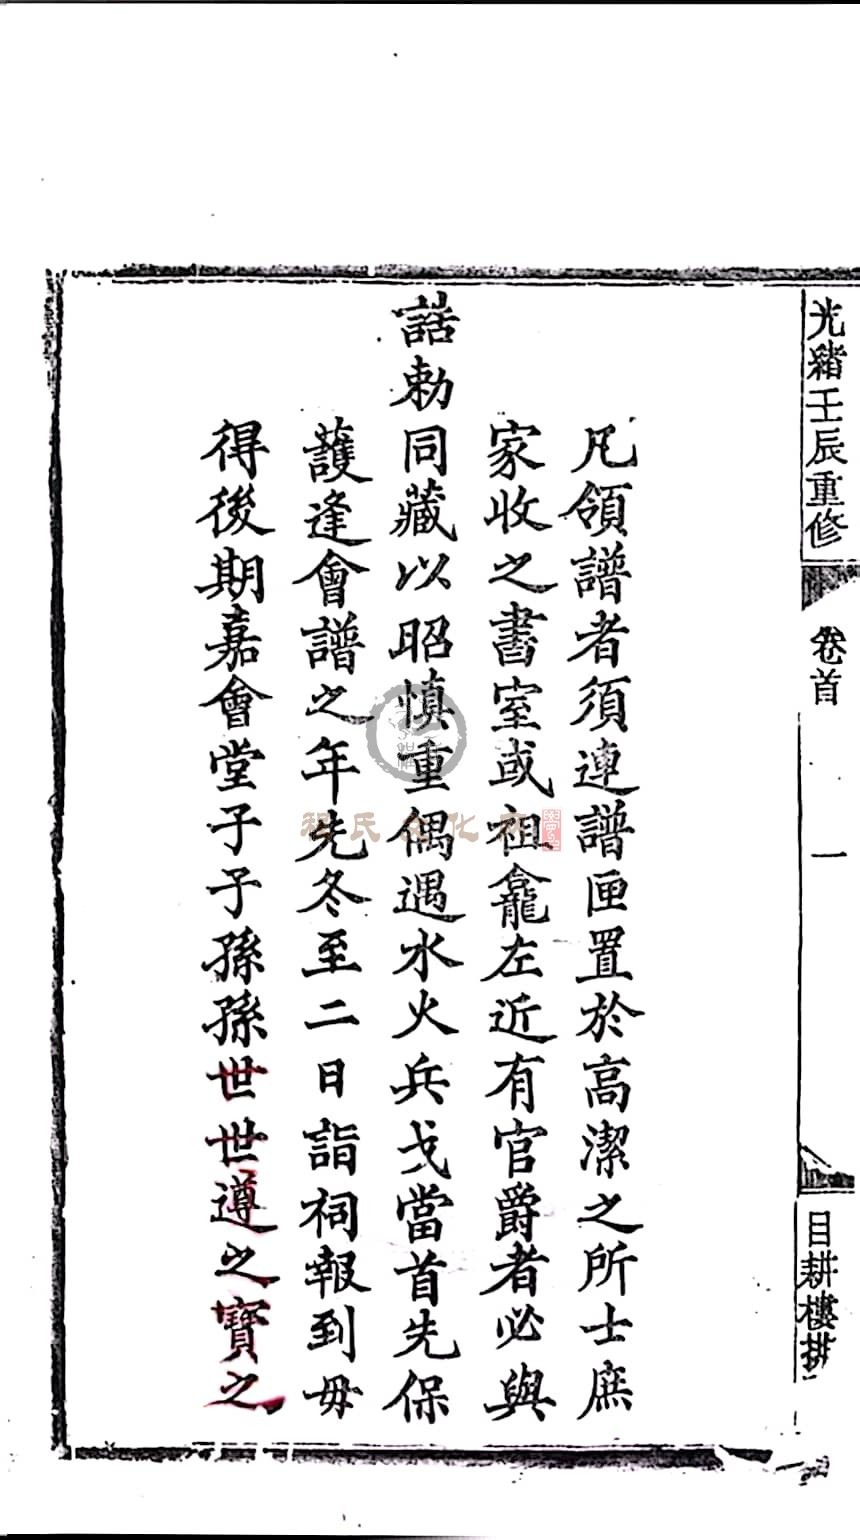 光緒壬辰重修
卷首
一
目耕樓排
凡領譜者須連譜匣置於高潔之所士庶
家收之書室或祖龕左近有官爵者必與
誥勅同藏以昭慎重偶遇水火兵戈當首先保
護逢會譜之年先冬至二日詣祠報到毋
得後期嘉會堂子子孫孫世世遵之寶之
程氏文化